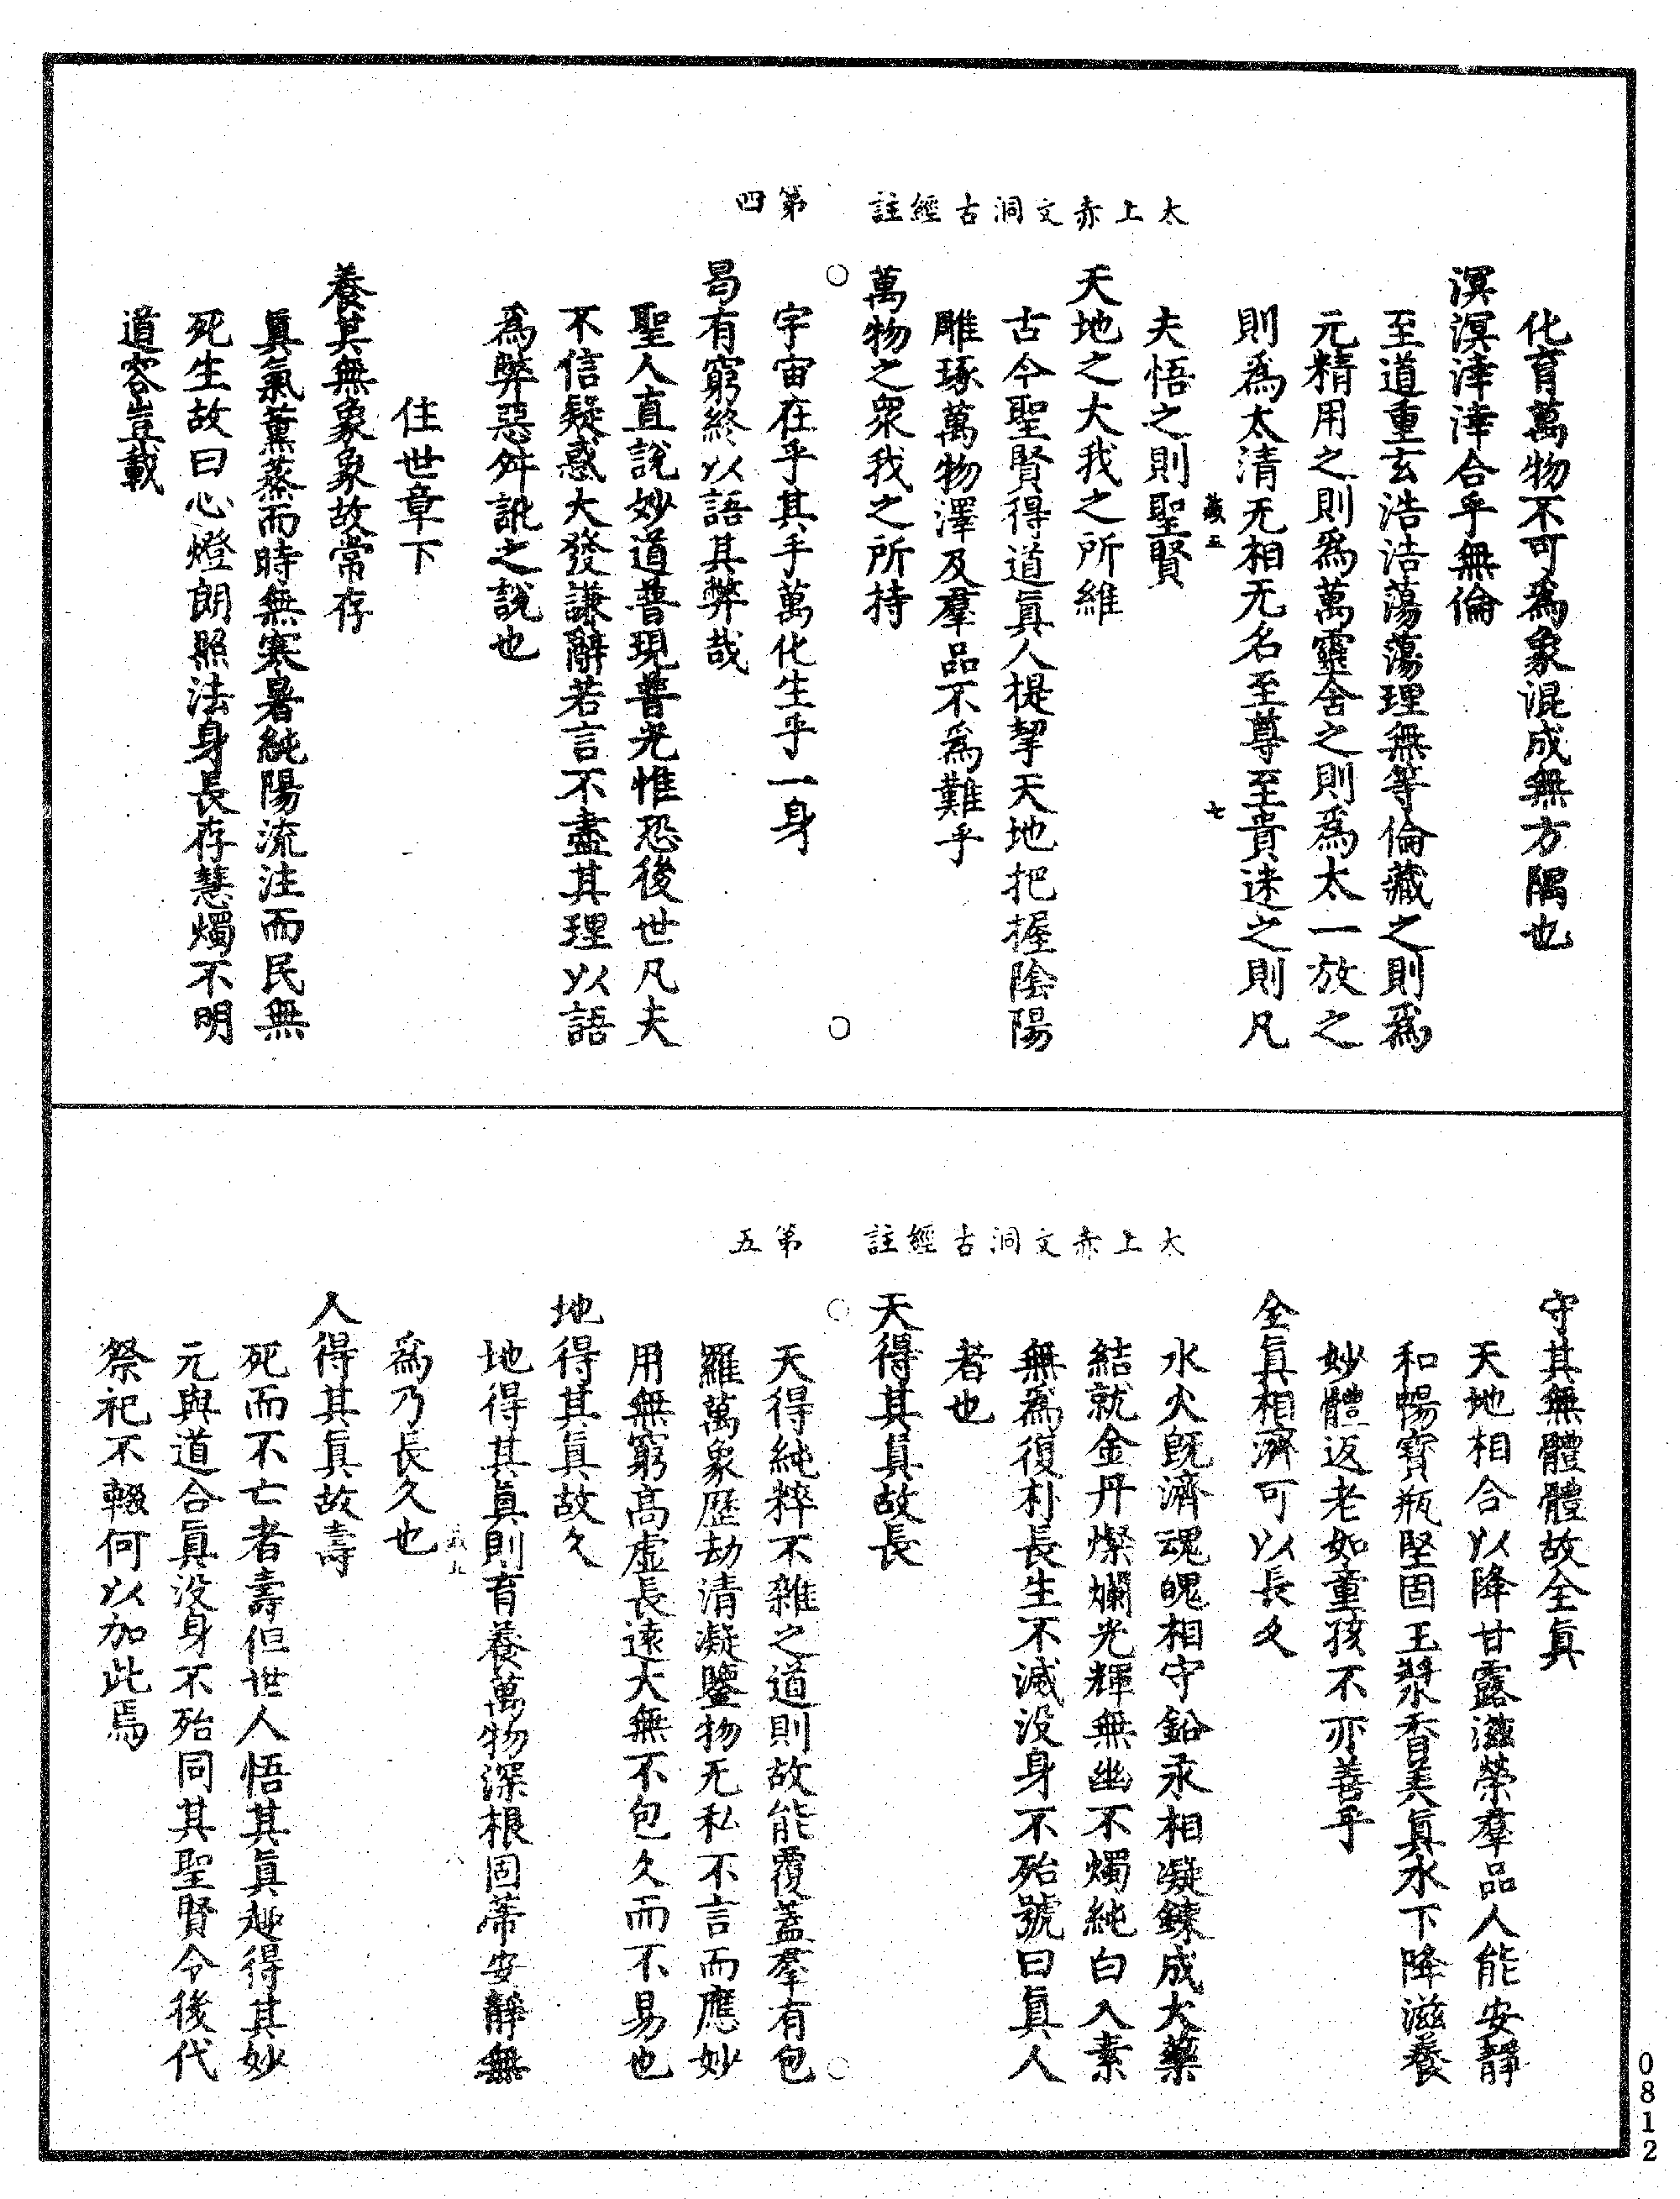 太上赤文洞古經註　第四
化育萬物不可爲象混成無方隅也
溟溟滓滓合乎無倫
至道重玄浩浩蕩蕩理無等倫藏之則爲
元精用之則爲萬靈舍之則爲太一放之
則爲太清无相无名至尊至貴迷之則凡
七
夫悟之則聖賢
天地之大我之所維
古今聖賢得道眞人提挈天地把握陰陽
雕琢萬物澤及羣品不爲難乎
萬物之衆我之所持
宇宙在乎其手萬化生乎一身
曷有窮終以語其弊哉
聖人直說妙道普現普光惟恐後世凡夫
不信疑惑大發謙辭若言不盡其理以語
爲弊惡舛訛之說也
住世章下
養其無象象故常存
眞氣薰蒸而時無寒暑純陽流注而民無
死生故曰心燈朗照法身長存慧燭不明
道容豈載
太上赤文洞古經註　第五
守其無體體故全眞
天地相合以降甘露滋榮羣品人能安靜
和暢寶瓶堅固玉漿香美眞水下降滋養
妙體返老如童孩不亦善乎
全眞相濟可以長久
水火旣濟魂魄相守鉛汞相凝鍊成大藥
結就金丹燦爛光輝無幽不燭純白入素
無爲復朴長生不滅沒身不殆號曰眞人
者也
天得其眞故長
天得純粹不雜之道則故能覆蓋羣有包
羅萬象歷劫清凝鑒物无私不言而應妙
用無窮高虛長遠大無不包久而不易也
地得其眞故久
地得其眞則育養萬物深根固蒂安靜無
八
爲乃長久也
人得其眞故壽
死而不亡者壽但世人悟其眞趣得其妙
元與道合眞沒身不殆同其聖賢令後代
祭祀不輟何以加此焉
0812